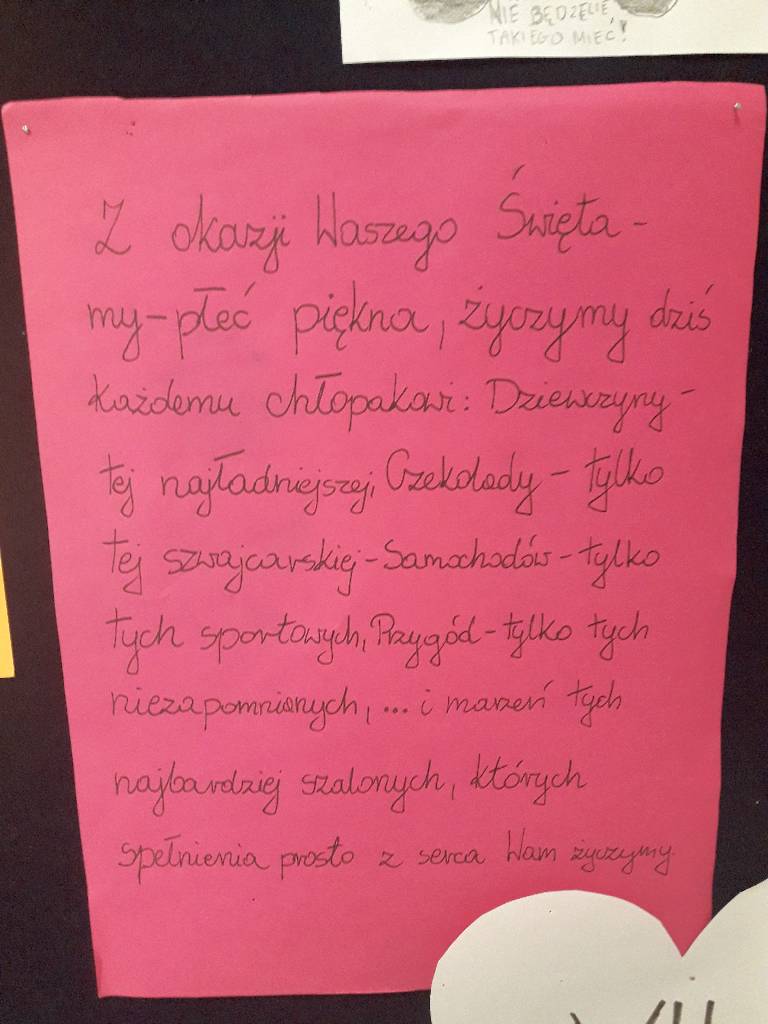 NIE BĘDZIECIE
TAKIEGO MIEĆ!
Z okazji Waszego Święta -
my-płeć piękna, życzymy dziś
każdemu chłopakowi: Dziewczyny -
tej najładniejszej, Czekolady - tylko
tej szwajcarskiej - Samochodów - tylko
tych sportowych, Przygód - tylko tych
niezapomnianych, ... i marzeń tych
najbardziej szalonych, których
spełnienia prosto z serca Wam życzymy